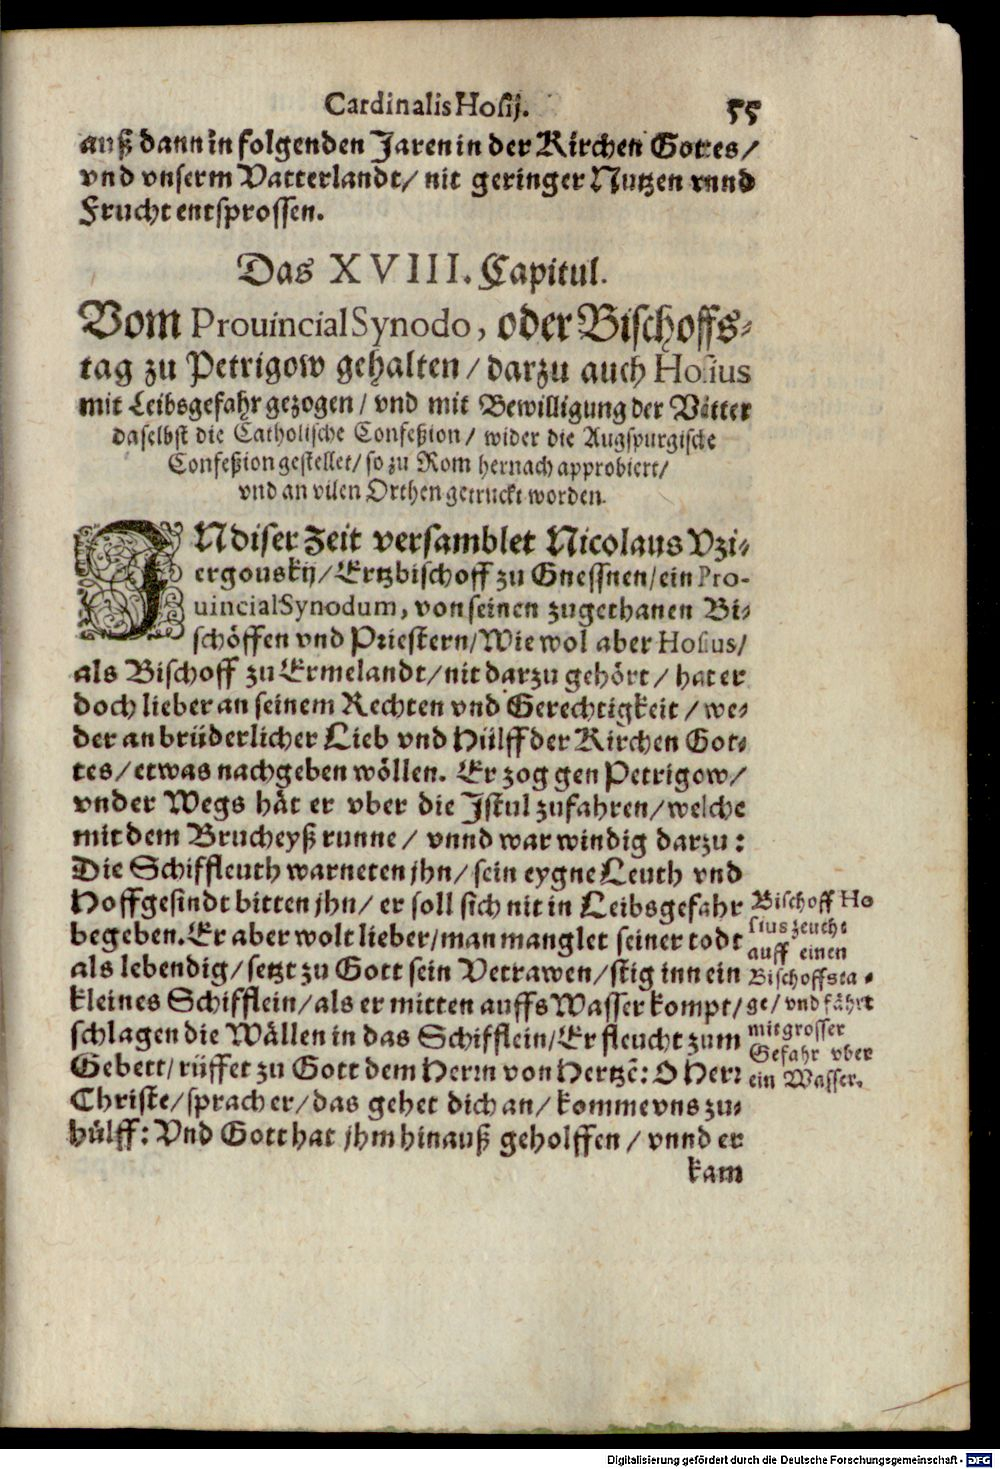 Cardinalis Hosij. 55
auß dann in folgenden Jaren in der Kirchen Gottes/
vnd vnserm Vatterlandt/ nit geringer Nutzen vnnd
Frucht entsprossen.
Das XVIII. Capitul.
Vom Prouincial Synodo, oder Bischoffs-
tag zu Petrigow gehalten / darzu auch Hosius
mit Leibsgefahr gezogen / vnd mit Bewilligung der Vätter
daselbst die Catholische Confeßion / wider die Augspurgische
Confeßion gestellet/ so zu Rom hernach approbiert/
vnd an vilen Orthen getruckt worden.
INdiser Zeit versamblet Nicolaus Vzi-
ergouskij/ Ertzbischoff zu Gnessnen/ ein Pro-
uincial Synodum, von seinen zugethanen Bi-
schöffen vnd Priestern/ Wie wol aber Hosius/
als Bischoff zu Ermelandt/ nit darzu gehört/ hat er
doch lieber an seinem Rechten vnd Gerechtigkeit / we-
der an brüderlicher Lieb vnd Hülff der Kirchen Got-
tes/ etwas nachgeben wöllen. Er zog gen Petrigow/
vnder Wegs hät er vber die Istul zufahren/ welche
mit dem Brucheyß runne/ vnnd war windig darzu:
Die Schiffleuth warneten jhn/ sein eygne Leuth vnd
Hoffgesindt bitten jhn/ er soll sich nit in Leibsgefahr
begeben. Er aber wolt lieber/ man manglet seiner todt
als lebendig/ setzt zu Gott sein Vetrawen/ stig inn ein
kleines Schifflein/ als er mitten auffs Wasser kompt/
schlagen die Wällen in das Schifflein/ Er fleucht zum
Gebett/ rüffet zu Gott dem Herrn von Hertzē: O Herr
Christe/ sprach er/ das gehet dich an/ komme vns zu-
hülff: Vnd Gott hat jhm hinauß geholffen / vnnd er
kam
Bischoff Ho
sius zeucht
auff einen
Bischoffsta-
ge/ vnd fährt
mit grosser
Gefahr vber
ein Wasser.
Digitalisierung gefördert durch die Deutsche Forschungsgemeinschaft - DFG